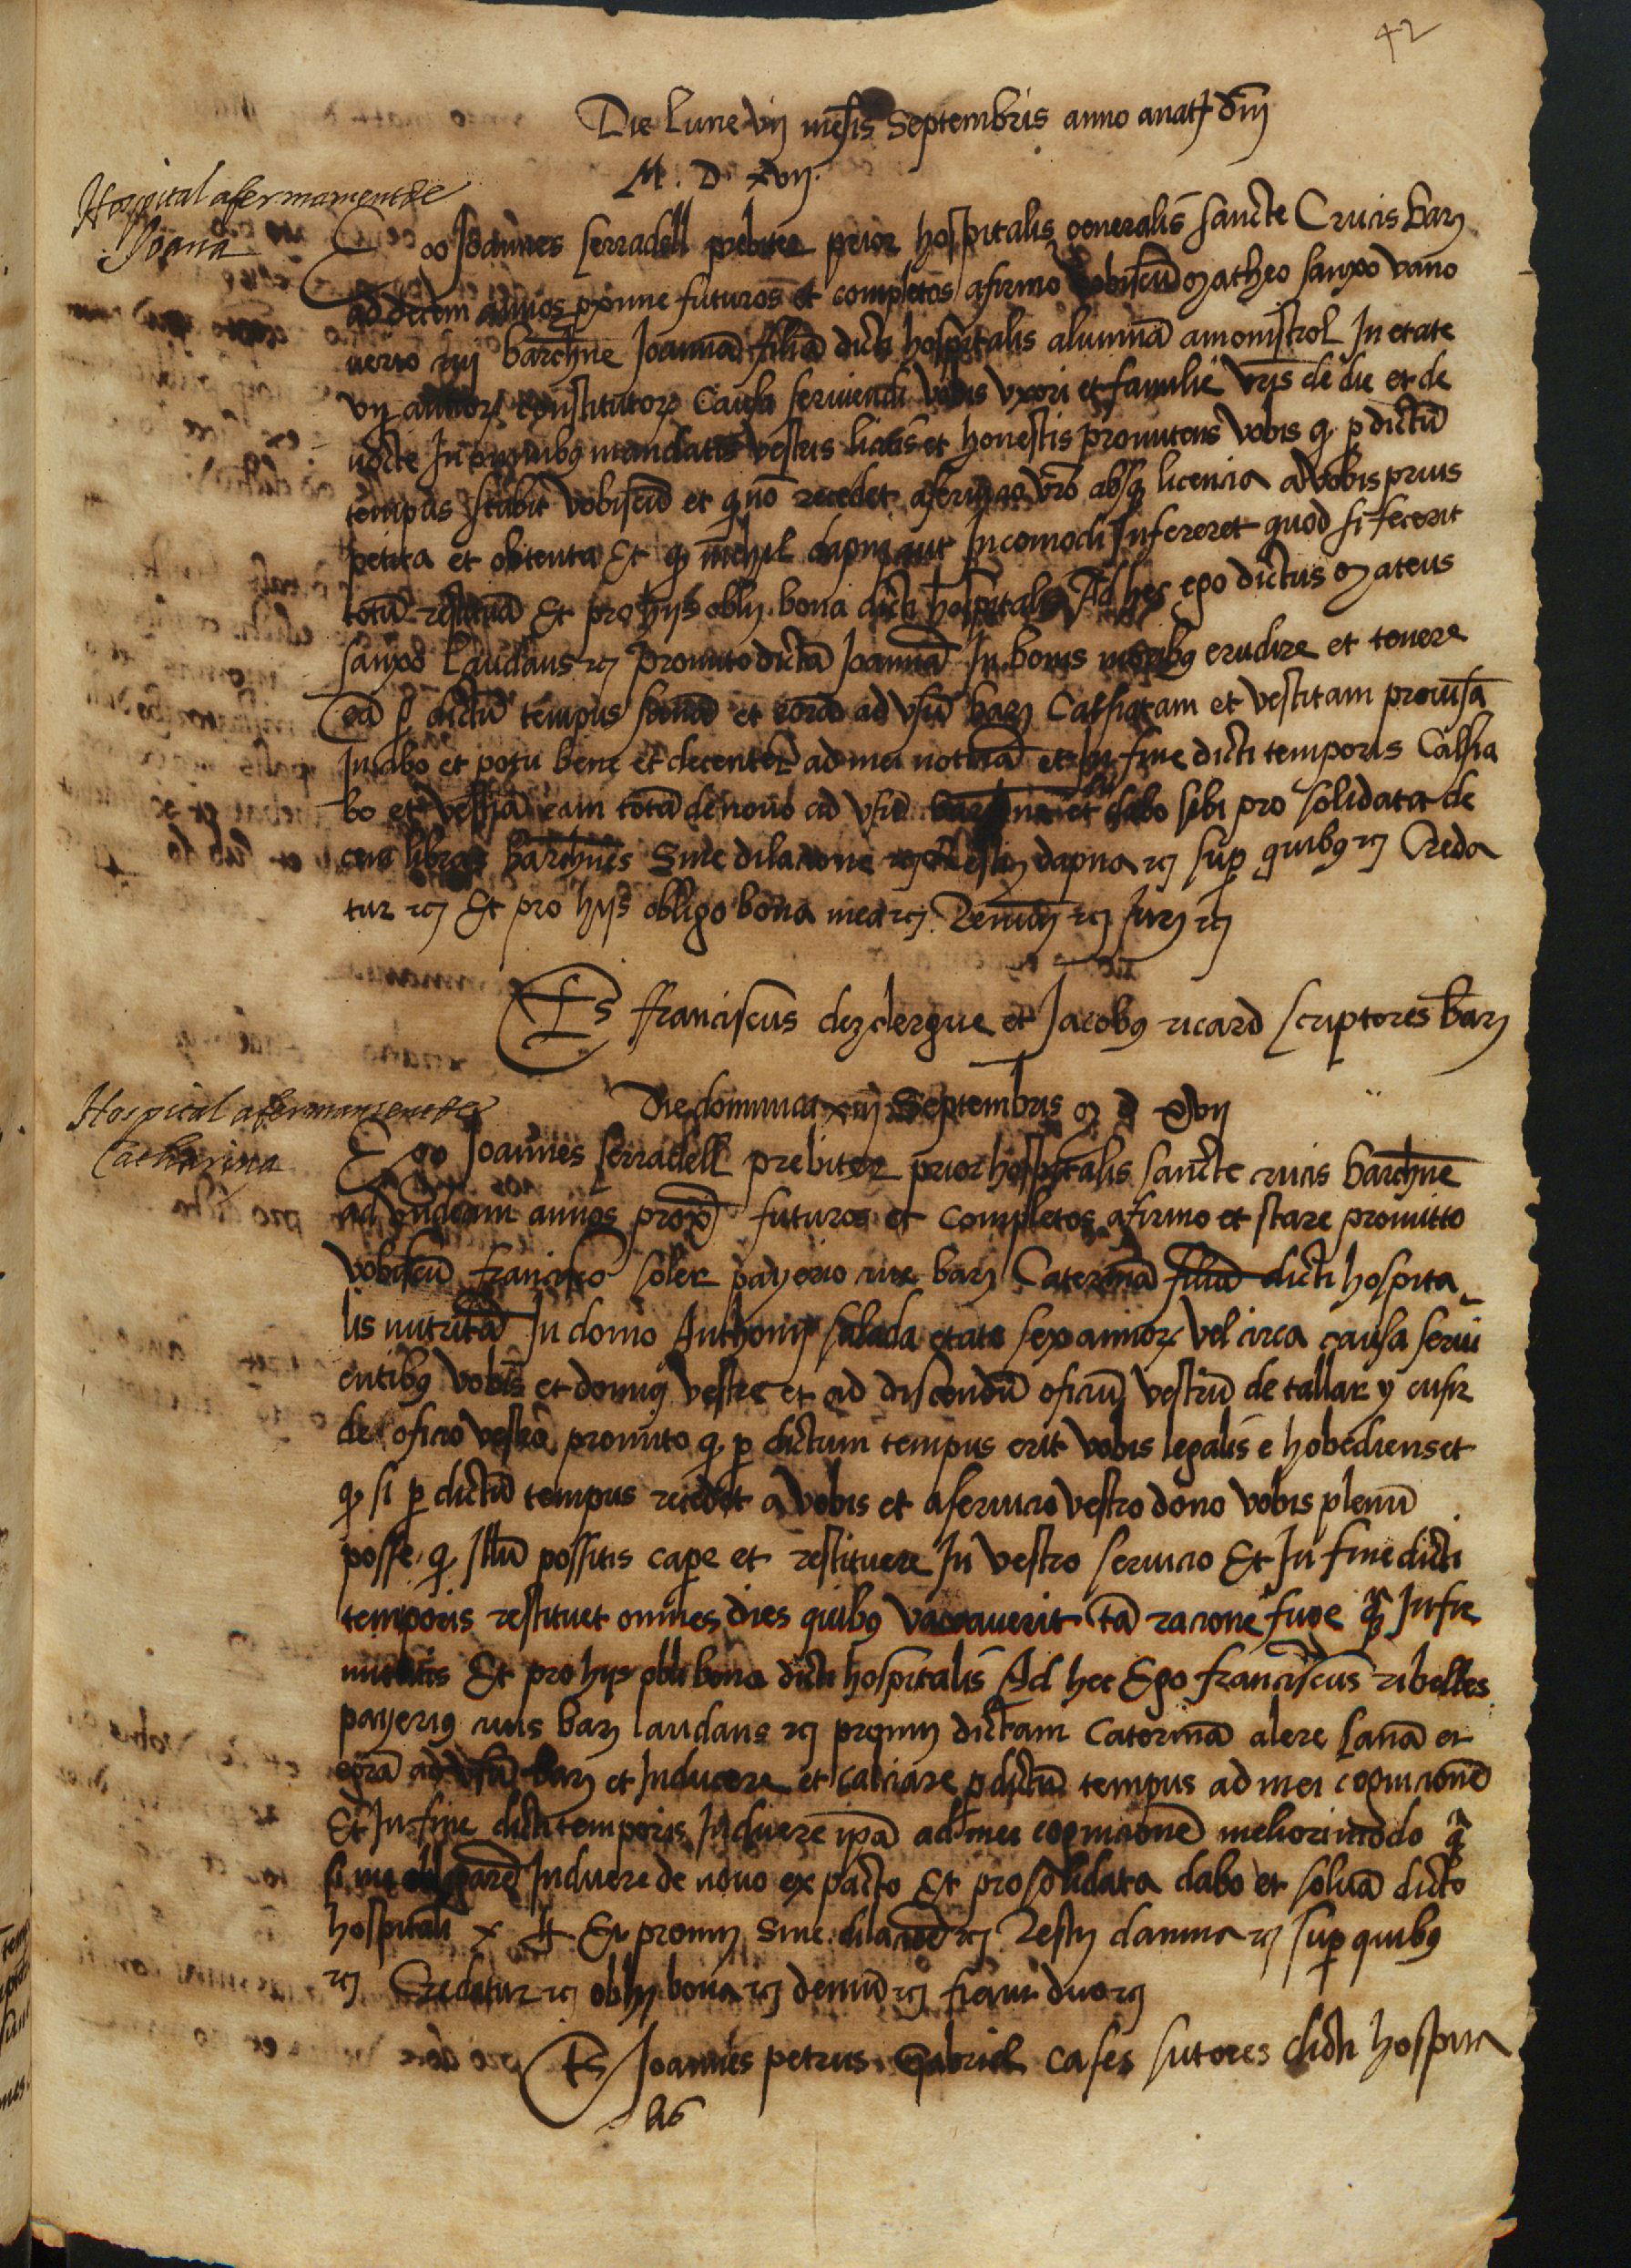 42
Die Lune vij mēsis Septembris anno a natē dñj
M. D. xvij.
Hospital afermament de
Joana
Ego Joannes serradell prebiter prior hospitalis generalis sancte Crucis barñ
ad decem annos p̱xime futuros et completos afirmo vobiscū matheo sanxo vano
verio civi barchne Joannā filiā dicti hospitalis alumnā a monistrol In etate
vij annorꝝ constitutorꝝ Causa serviendi vobis uxori et familie vr̄is de die et de
nocte In omnibꝰ mandatis vestris licitis et honestis promitens vobis q̱ p̱ dictū
tempus stabit vobiscū et q̱ nō recedet a servicio vr̄o absq̱ licencia a vobis prius
petita et obtenta Et q̱ nichil dapnj aut Incomodi Infereret quod si fecerit
totū restituā Et pro hijs oblij bona dicti hospitalis Ad hec ego dictus mateus
sanxo Laudans rcj promito dictā Joannā In bonis moribꝰ erudire et tenere
eā p̱ dictū tempus sanā et egrā ad usū barñ Calsiatam et vestitam provisā
In cibo et potu bene et decenter ad mei noticiā et In fine dicti temporis Calsia
bo et vestiā eam totā de novo ad usū et dabo sibi pro solidata de
cem libras barchnes Sine dilacione rcj restij dapna rcj sup̱ quibꝰ rcj Creda
tur rcj Et pro hijs obligo bona mea rcj Renūcij rcj Jurj rcj
Ts ffranciscus dezclergue et Jacobꝰ ricard scriptores barñ
Hospital afermament de
Catharina
Die dominica xiij Septembris M D xvij
Ego Joannes serradell prebiter prior hospitalis sancte crucis barchne
ad undecim annos prox̄ futuros et completos afirmo et stare promitto
vobiscū francisco soler payerio cive barñ Caterinā filiā dicti hospita
lis nutritā In domo Anthonij salada etate sex annorꝝ vel circa causa servi
entibꝰ vobis et domuj vestre et ad discendū oficiū vestrū de tallar y cusir
de oficio vestro promito q̱ p̱ dictum tempus erit vobis legalis e hobediens et
q̱ si p̱ dictū tempus recedet a vobis et a servicio vestro dono vobis plenū
posse q̱ Illū possitis cap̱e et restituere In vestro servicio Et In fine dicti
temporis restituet omnes dies quibꝰ vacaverit tā racione fuge q̄ Infir
mitatis Et pro hijs obli bona dicti hospitalis Ad hec Ego franciscus ribelles
payeriꝰ civis barñ laudans rcj promij dictam Caterinā alere sanā et
egrā ad usū barñ et Inducere et calciare p̱ dictū tempus ad mei cognicionē
Et In fine dicti temporis Induere ipā ad mei cognicionē meliori modo q̄
si me obligarē Induere de novo ex pacto Et pro solidata dabo et solvā dicto
hospitali x ₶ Et promij Sine dilacōe rcj Restij damna rcj sup̱ quibꝰ
rcj Credatur rcj oblij bona rcj denuū rcj fiant duo rcj
Ts Joannes petrus Gabriel cases sutores dicti hospita
lis